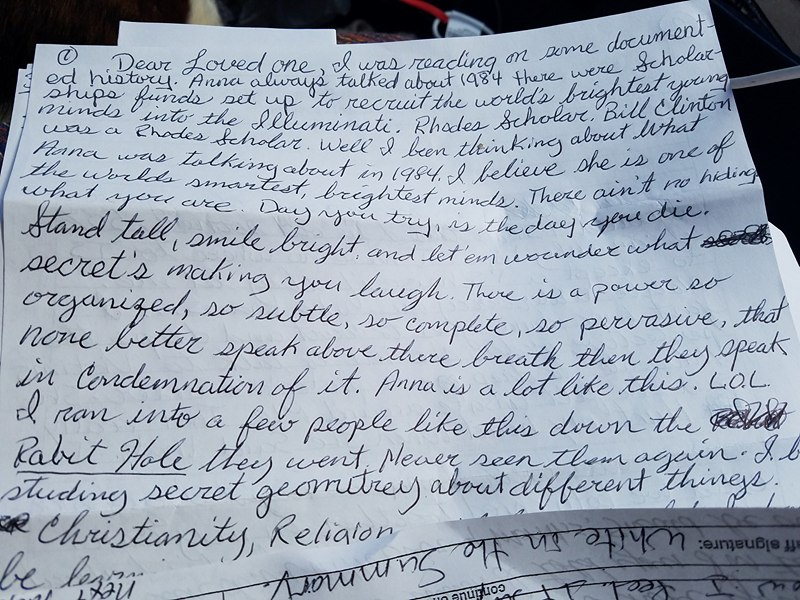 ①
Dear Loved one, I was reading on some document-
ed history. Anna always talked about 1984 there were Scholar-
ships funds set up to recruit the world's brightest young
minds into the Illuminati. Rhodes Scholar. Bill Clinton
was a Rhodes Scholar. Well I been thinking about What
Anna was talking about in 1984. I believe she is one of
the worlds smartest, brightest minds. There ain't no hiding
what you are. Day you try, is the day you die.
Stand tall, smile bright, and let'em wounder what
secret's making you laugh. There is a power so
organized, so subtle, so complete, so pervasive, that
none better speak above there breath then they speak
in Condemnation of it. Anna is a lot like this. L.O.L.
I ran into a few people like this down the
Rabit Hole they went, Never seen them again. I b
studing secret geomitrey about different things.
Christianity, Religion
be learn
aff signature: White in the Summary.
continue on
I feel